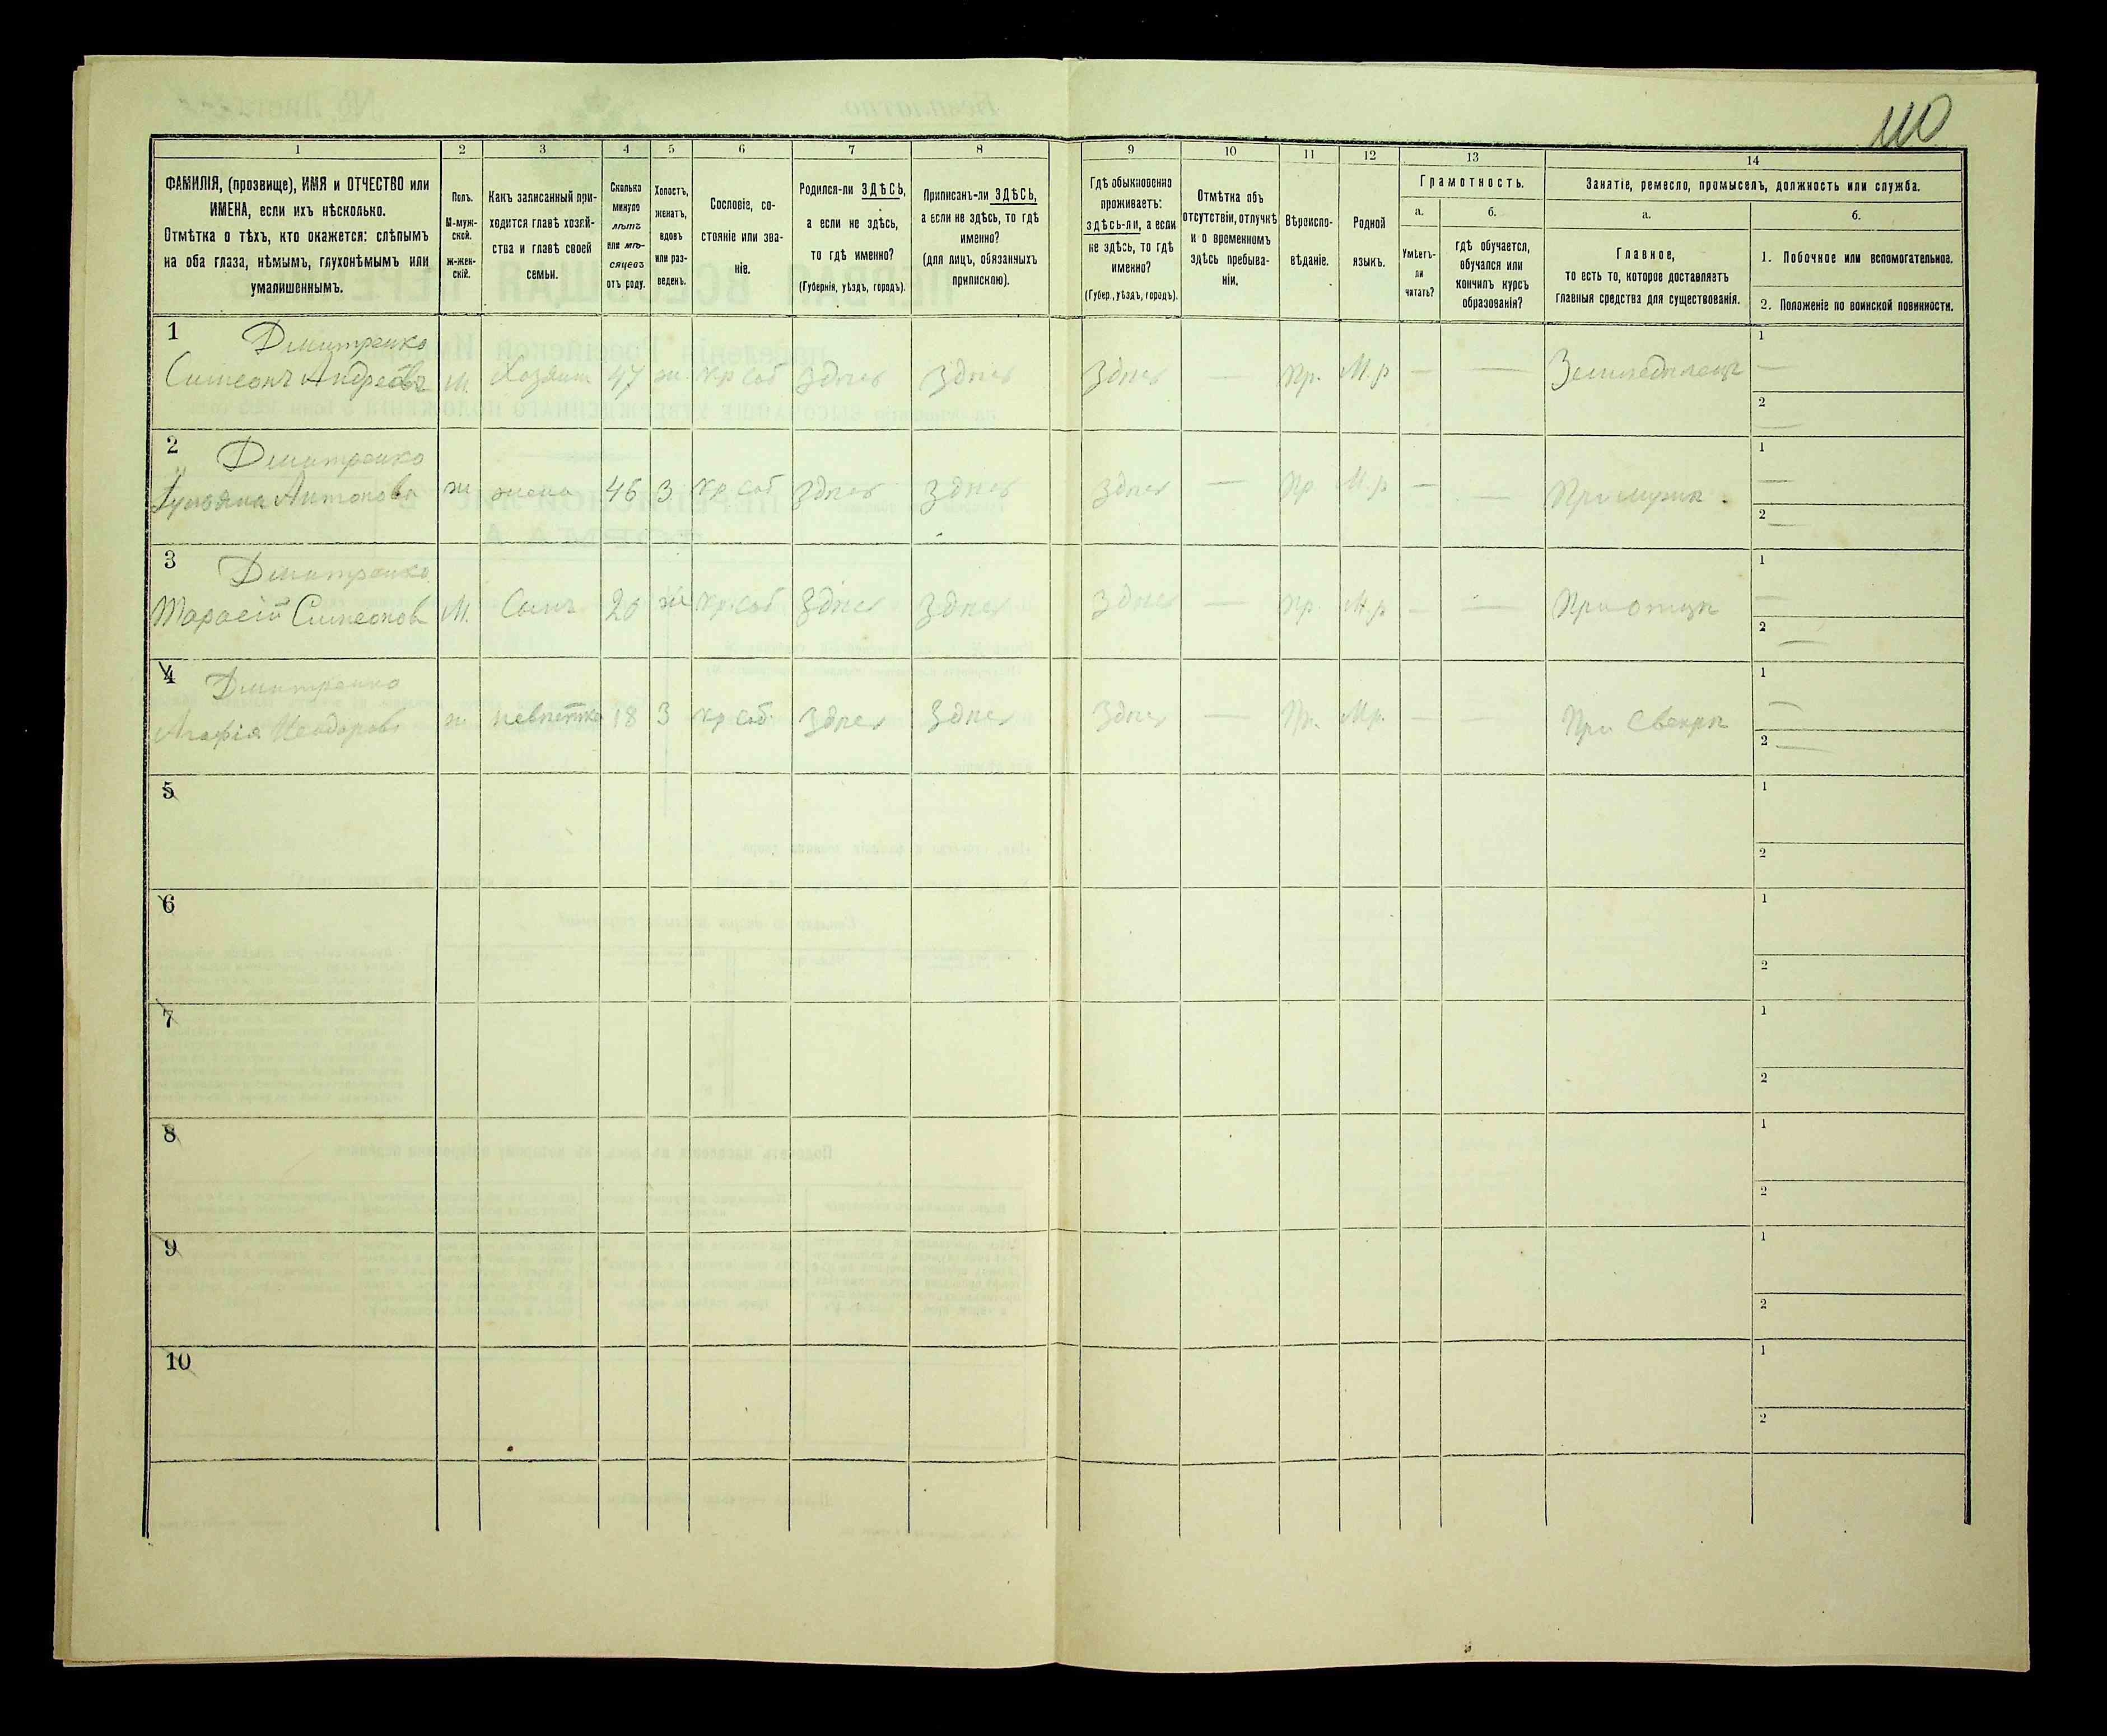 110
1
2
3
4
5
6
7
8
9
10
11
12
13
14
ФАМИЛІЯ, (прозвище), ИМЯ и ОТЧЕСТВО или
ИМЕНА, если ихъ нѣсколько.
Отмѣтка о тѣхъ, кто окажется: слѣпымъ
на оба глаза, нѣмымъ, глухонѣмымъ или
умалишеннымъ.
Полъ.
М-муж-
ской.
ж-жен-
скій.
Какъ записанный при-
ходится главѣ хозяй-
ства и главѣ своей
семьи.
Сколько
минуло
лѣтъ
или мѣ-
сяцевъ
отъ роду.
Холостъ,
женатъ,
вдовъ
или раз-
веденъ.
Сословіе, со-
стояніе или зва-
ніе.
Родился-ли ЗДѢСЬ,
а если не здѣсь,
то гдѣ именно?
(Губернія, уѣздъ, городъ).
Приписанъ-ли ЗДѢСЬ,
а если не здѣсь, то гдѣ
именно?
(для лицъ, обязанныхъ
припискою).
Гдѣ обыкновенно
проживаетъ:
здѣсь-ли, а если
не здѣсь, то гдѣ
именно?
(Губер., уѣздъ, городъ).
Отмѣтка объ
отсутствіи, отлучкѣ
и о временномъ
здѣсь пребыва-
ніи.
Вѣроиспо-
вѣданіе.
Родной
языкъ.
Грамотность.
а.
Умѣетъ-
ли
читать?
б.
гдѣ обучается,
обучался или
кончилъ курсъ
образованія?
Занятіе, ремесло, промыселъ, должность или служба.
а.
Главное,
то есть то, которое доставляетъ
главныя средства для существованія.
б.
1. Побочное или вспомогательное.
2. Положеніе по воинской повинности.
1 Дмитренко
Симеонъ Андреевъ м. Хозяин 47 ж. кр соб здѣсь здѣсь здѣсь — пр. М.р — — Земледѣлецъ
1 —
2 —
2 Дмитренко
Антонова ж жена 46 З кр. соб здѣсь здѣсь здѣсь — пр. М.р — — При мужѣ.
1 —
2 —
3 Дмитренко
Тарасій Симеонов М. Сынъ 20 ж кр. соб здѣсь здѣсь здѣсь — пр. М.р — — При отцѣ
1 —
2 —
4 Дмитренко
Агафія ж. невѣстка 18 З кр соб. здѣсь здѣсь здѣсь — Пр. М.р. — — При Свекрѣ
1 —
2 —
5
1
2
6
1
2
7
1
2
8
1
2
9
1
2
10
1
2